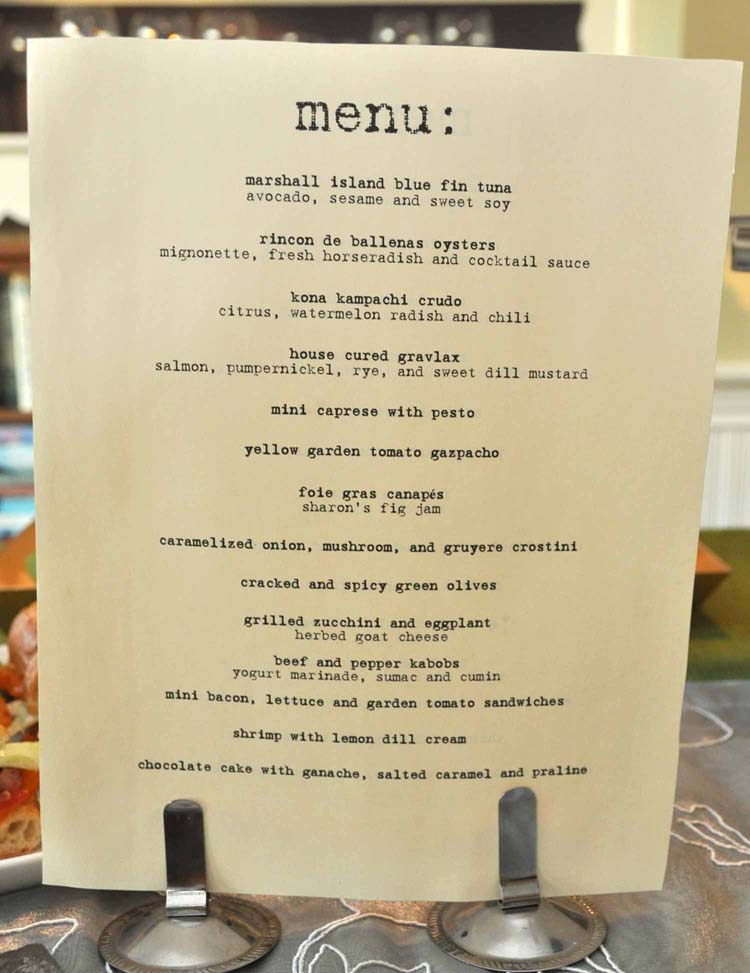 menu:
marshall island blue fin tuna
avocado, sesame and sweet soy
rincon de ballenas oysters
mignonette, fresh horseradish and cocktail sauce
kona kampachi crudo
citrus, watermelon radish and chili
house cured gravlax
salmon, pumpernickel, rye, and sweet dill mustard
mini caprese with pesto
yellow garden tomato gazpacho
foie gras canapés
sharon's fig jam
caramelized onion, mushroom, and gruyere crostini
cracked and spicy green olives
grilled zucchini and eggplant
herbed goat cheese
beef and pepper kabobs
yogurt marinade, sumac and cumin
mini bacon, lettuce and garden tomato sandwiches
shrimp with lemon dill cream
chocolate cake with ganache, salted caramel and praline